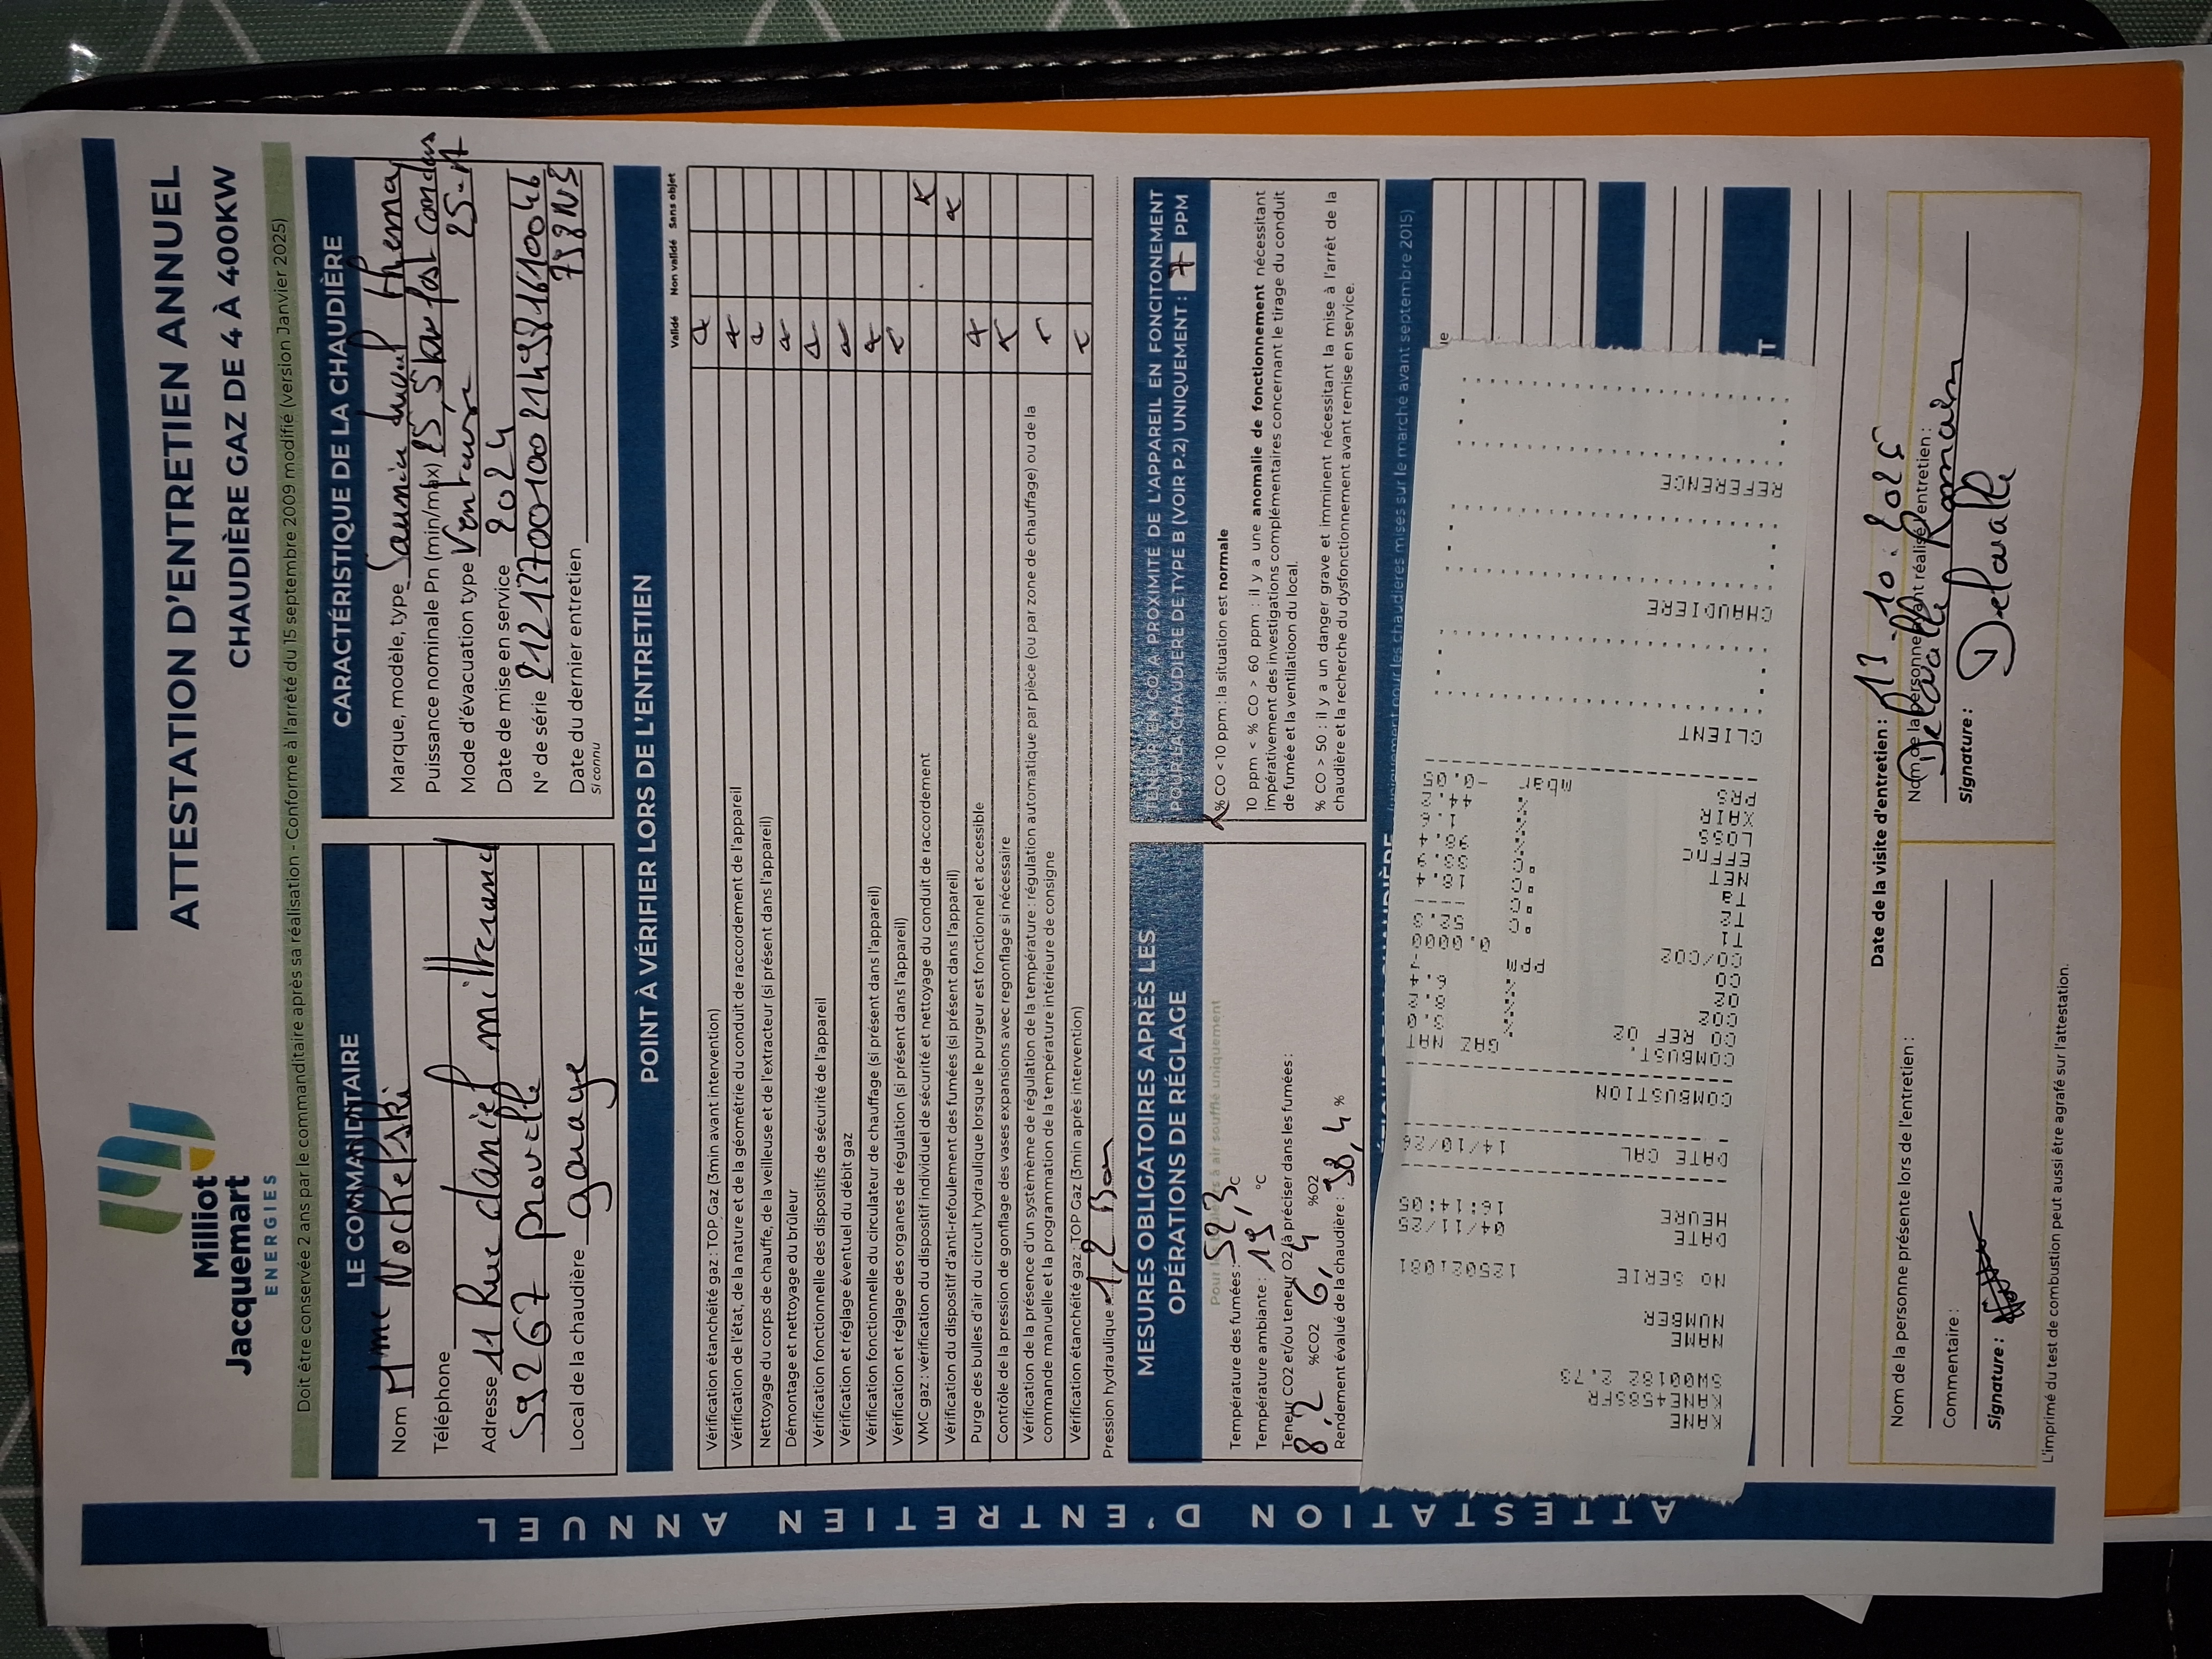 Milliot
Jacquemart
ENERGIES
ATTESTATION D'ENTRETIEN ANNUEL
CHAUDIÈRE GAZ DE 4 À 400KW
Doit être conservée 2 ans par le commanditaire après sa réalisation - Conforme à l'arrêté du 15 septembre 2009 modifié (version Janvier 2025)
LE COMMANDITAIRE
Nom Mme Nochelski
Téléphone
Adresse 11 Rue daniel mitterrand
59267 proville
Local de la chaudière garage
CARACTÉRISTIQUE DE LA CHAUDIÈRE
Marque, modèle, type Saunier duval thema
Puissance nominale Pn (min/max) 25, Star fast condens
Mode d'évacuation type Ventouse 25-A
Date de mise en service 2024
N° de série
Date du dernier entretien
si connu
POINT À VÉRIFIER LORS DE L'ENTRETIEN
Validé Non validé Sans objet
Vérification étanchéité gaz : TOP Gaz (3min avant intervention)
Vérification de l'état, de la nature et de la géométrie du conduit de raccordement de l'appareil
Nettoyage du corps de chauffe, de la veilleuse et de l'extracteur (si présent dans l'appareil)
Démontage et nettoyage du brûleur
Vérification fonctionnelle des dispositifs de sécurité de l'appareil
Vérification et réglage éventuel du débit gaz
Vérification fonctionnelle du circulateur de chauffage (si présent dans l'appareil)
Vérification et réglage des organes de régulation (si présent dans l'appareil)
VMC gaz : vérification du dispositif individuel de sécurité et nettoyage du conduit de raccordement
Vérification du dispositif d'anti-refoulement des fumées (si présent dans l'appareil)
Purge des bulles d'air du circuit hydraulique lorsque le purgeur est fonctionnel et accessible
Contrôle de la pression de gonflage des vases expansions avec regonflage si nécessaire
Vérification de la présence d'un systémème de régulation de la température : régulation automatique par pièce (ou par zone de chauffage) ou de la
commande manuelle et la programmation de la température intérieure de consigne
Vérification étanchéité gaz : TOP Gaz (3min après intervention)
Pression hydraulique 1,2 Bar
MESURES OBLIGATOIRES APRÈS LES
OPÉRATIONS DE RÉGLAGE
à air soufflé uniquement
Température des fumées : 52,3 °C
Température ambiante : 19 °C
Teneur CO2 et/ou teneur O2 (à préciser dans les fumées :
8,2 %CO2 6,4 %O2
Rendement évalué de la chaudière : 98,4 %
TENEUR EN CO À PROXIMITÉ DE L'APPAREIL EN FONCITONEMENT
POUR LA CHAUDIÈRE DE TYPE B (VOIR P.2) UNIQUEMENT : 7 PPM
% CO < 10 ppm : la situation est normale
10 ppm < % CO > 60 ppm : il y a une anomalie de fonctionnement nécessitant
impérativement des investigations complémentaires concernant le tirage du conduit
de fumée et la ventilation du local.
% CO > 50 : il y a un danger grave et imminent nécessitant la mise à l'arrêt de la
chaudière et la recherche du dysfonctionnement avant remise en service.
(uniquement pour les chaudières mises sur le marché avant septembre 2015)
KANE
KANE458SFR
SW00182 2.78
NAME
NUMBER
NO SERIE 125021081
DATE 04/11/25
HEURE 16:14:05
DATE CAL 14/10/26
COMBUSTION
COMBUST. GAZ NAT
CO REF O2
CO2 %
O2 %
CO ppm
CO/CO2 0.0000
T1 °C 52.3
T2 °C
Ta °C 18.4
NET °C
EFFNC % 98.4
LOSS % 1.6
XAIR % 44.2
PRS mbar -0.05
CLIENT
CHAUDIERE
REFERENCE
Nom de la personne présente lors de l'entretien :
Commentaire :
Signature :
Date de la visite d'entretien :
Nom de la personne ayant réalisé l'entretien :
Delavalle Romain
Signature :
Delavalle
L'imprimé du test de combustion peut aussi être agrafé sur l'attestation.
ATTESTATION D'ENTRETIEN ANNUEL